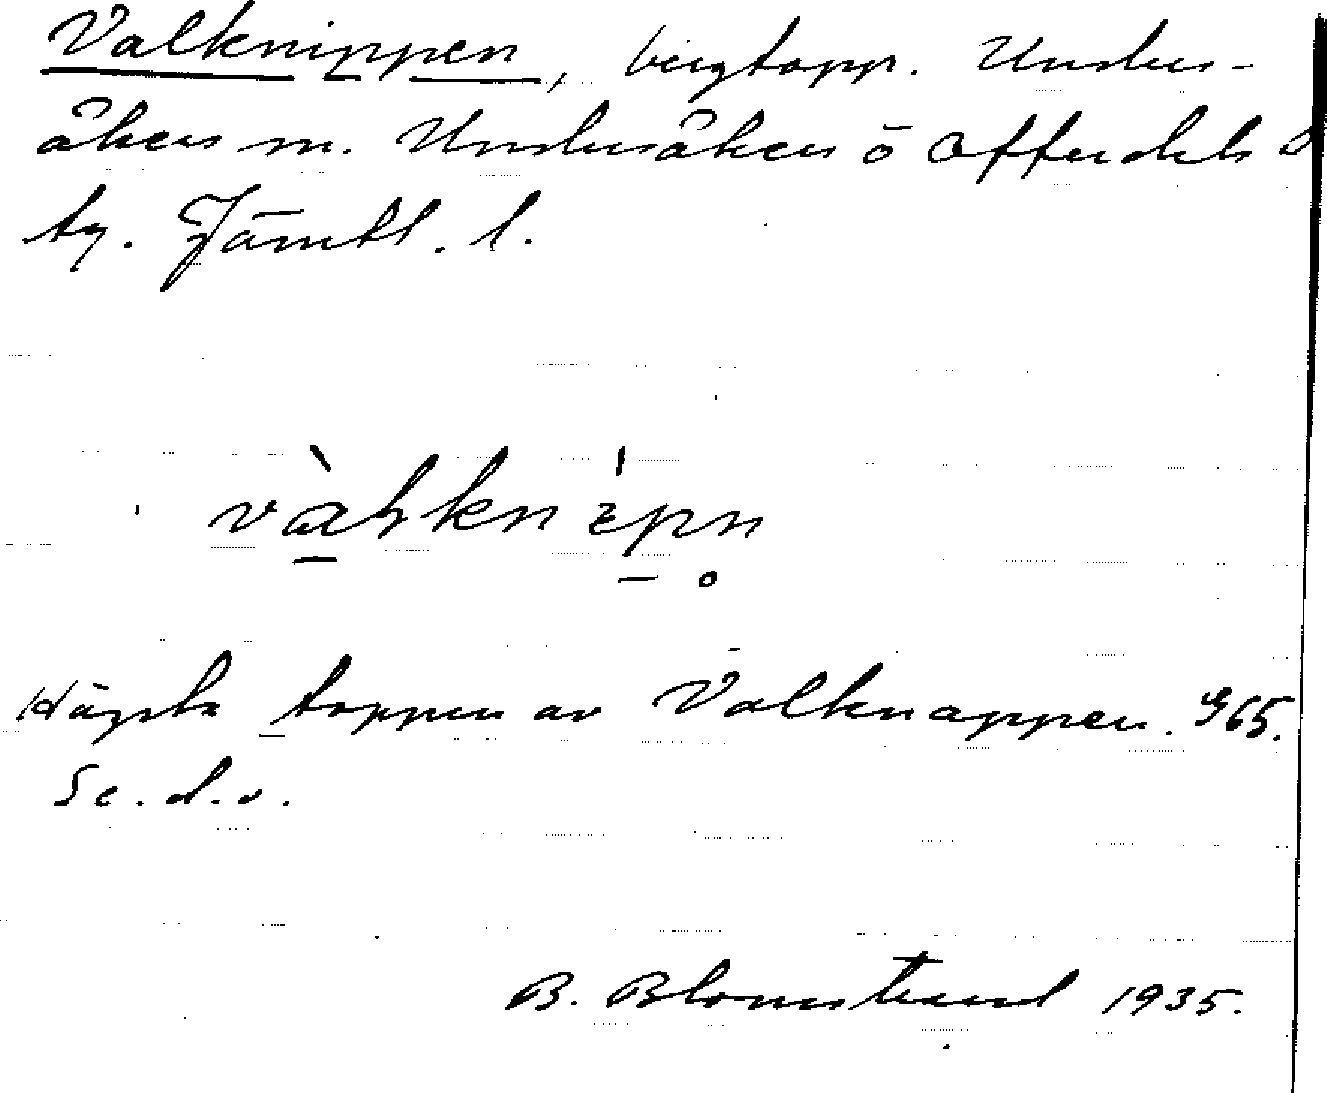 Valknippen, bergtopp. Unders-
åkers sn. Undersåkers o Offerdals
tg. Jämtl. l.
Högsta toppen av Valknappen. 965.
Se. d. o.
B. Blomstrand 1935.